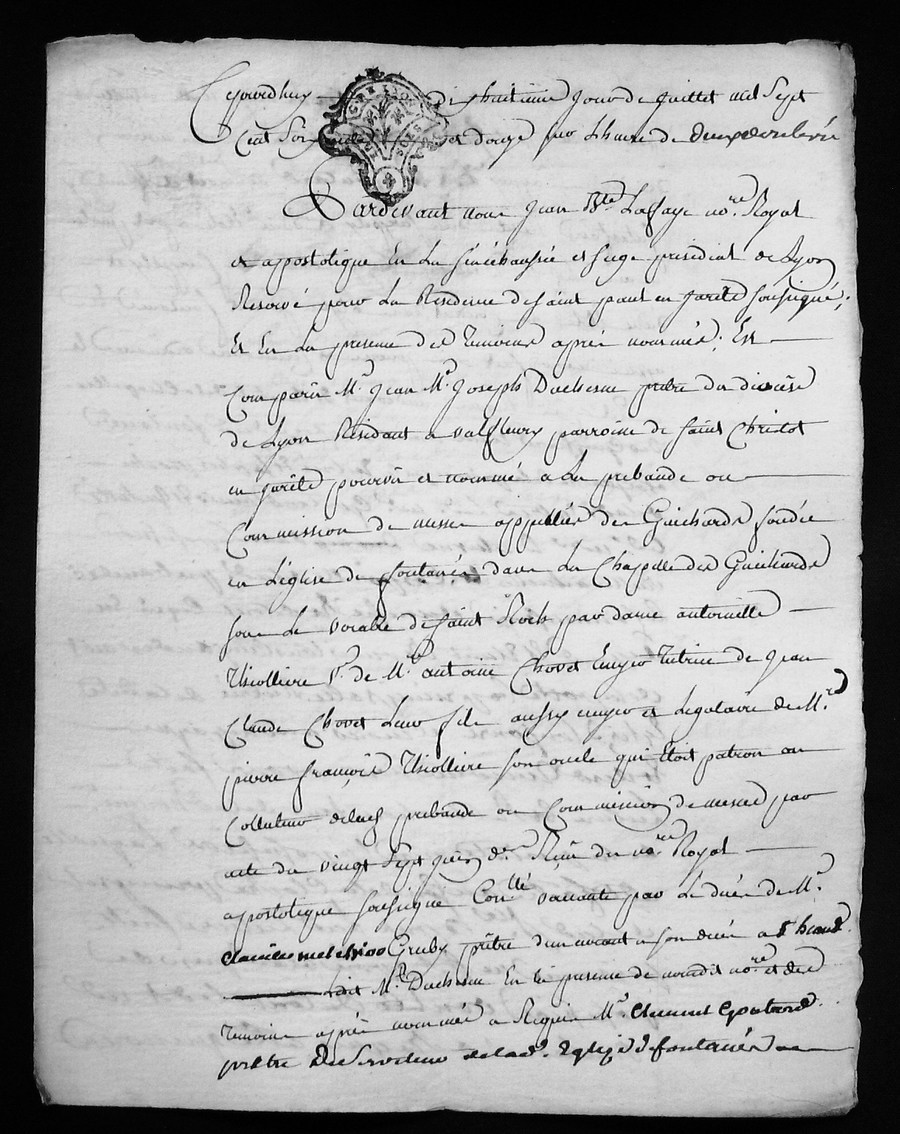 Cejourdhuy dixhuitieme jour de juillet mil Sept
Cent Soixante et douze sur Lheure de deux de relevée
GEN LYON
Pardevant nous Jean Bte Laffaye nore Royal
et appostolique En La Senechaussée et siege presidial de Lyon
Reservé pour La Residence de saint paul en jarêts soussigné;
Et En La presence des Temoins après nommés; Est
Comparu Mr Jean Me Joseph Duchesne pretre du diocèse
de Lyon Residant a valfleury parroisse de saint Christot
en jarêts pourvu et nommé a La prebande ou
Commission de messes appellée des Guichards fondée
en L'église de fontanès dans La Chapelle des Guichards
sous Le vocable de saint Roch par dame antoinette
Thiolliere Ve de Mr antoine Chovet tutrice de Jean
Claude Chovet Leur fils aussy et Legataire de Mre
pierre françois Thiolliere son oncle qui étoit patron ou
Collateur de lad prebande ou Commission de messes par
acte du vingt Sept juin der Reçu du nore Royal
apostolique soussigné Conllé vacante par Le décès de Mr
Gruby prêtre vivant a son décès a St
ledit Mr Duchesne En la presence de nousdit nore et des
temoins après nommés a Requis Mr Clement
prêtre Desserviteur de lad. Eglise de fontanès